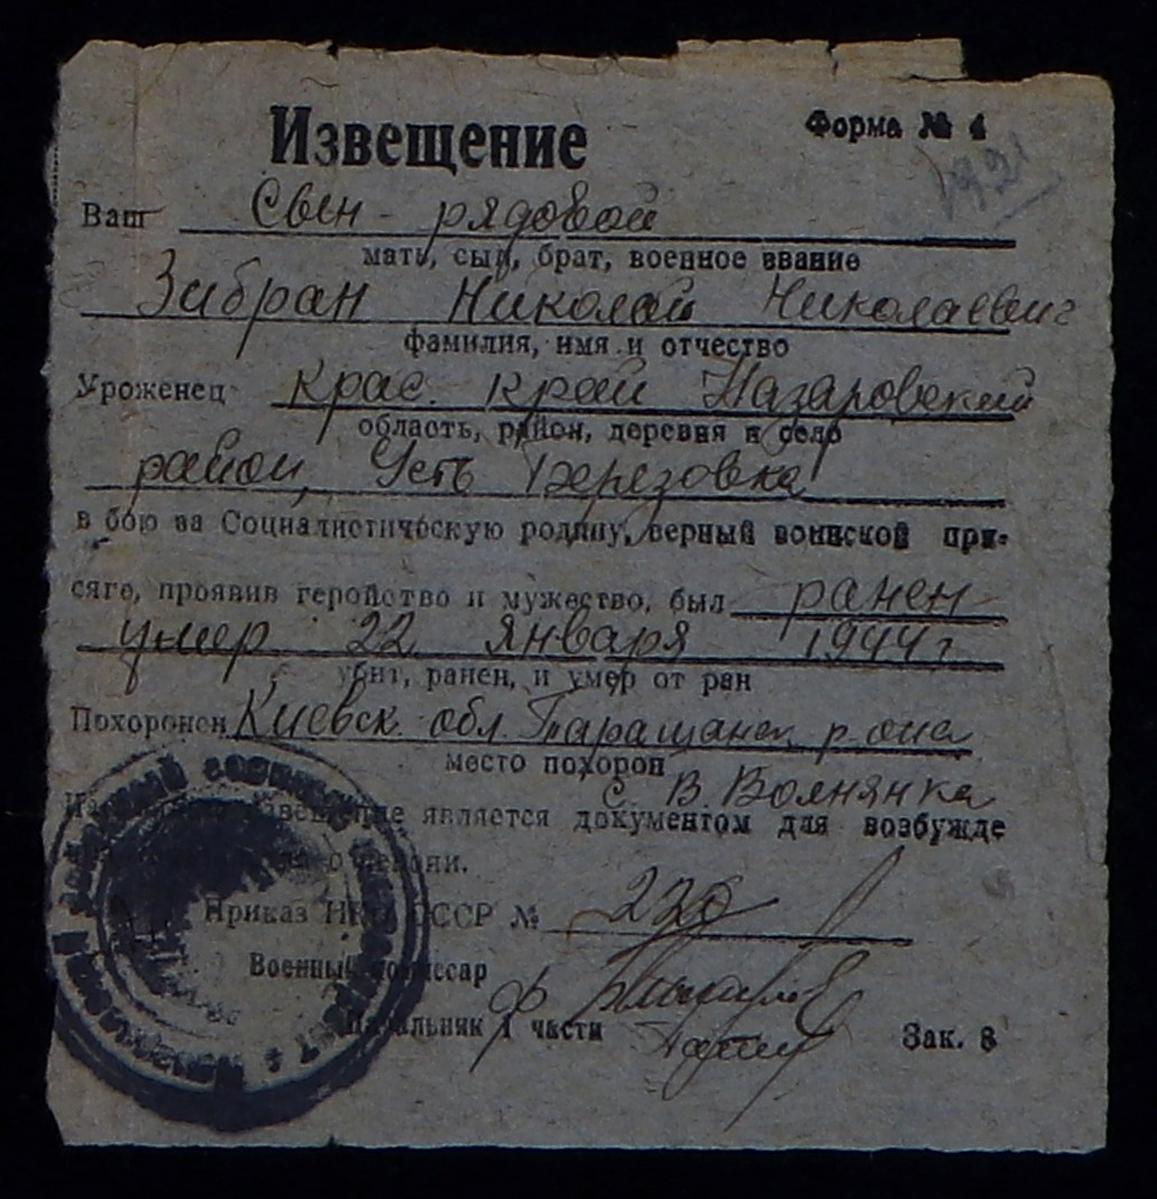 Извещение
Форма № 4
192
Ваш Сын - рядовой
мать, сын, брат, военное звание
Зибран Николай Николаевич
фамилия, имя и отчество
Уроженец Крас. край Назаровский
область, район, деревня и село
район, Усть Березовка
в бою за Социалистическую родину, верный воинской при-
сяге, проявив геройство и мужество, был ранен
умер 22 января 1944 г
убит, ранен, и умер от ран
Похоронен Киевск. обл. Таращанск. р-она
место похорон
с. В. Волнянка
извещение является документом для возбужде
о пенсии.
Приказ НКО СССР № 220
Военный комиссар
Начальник 1 части
Зак. 8